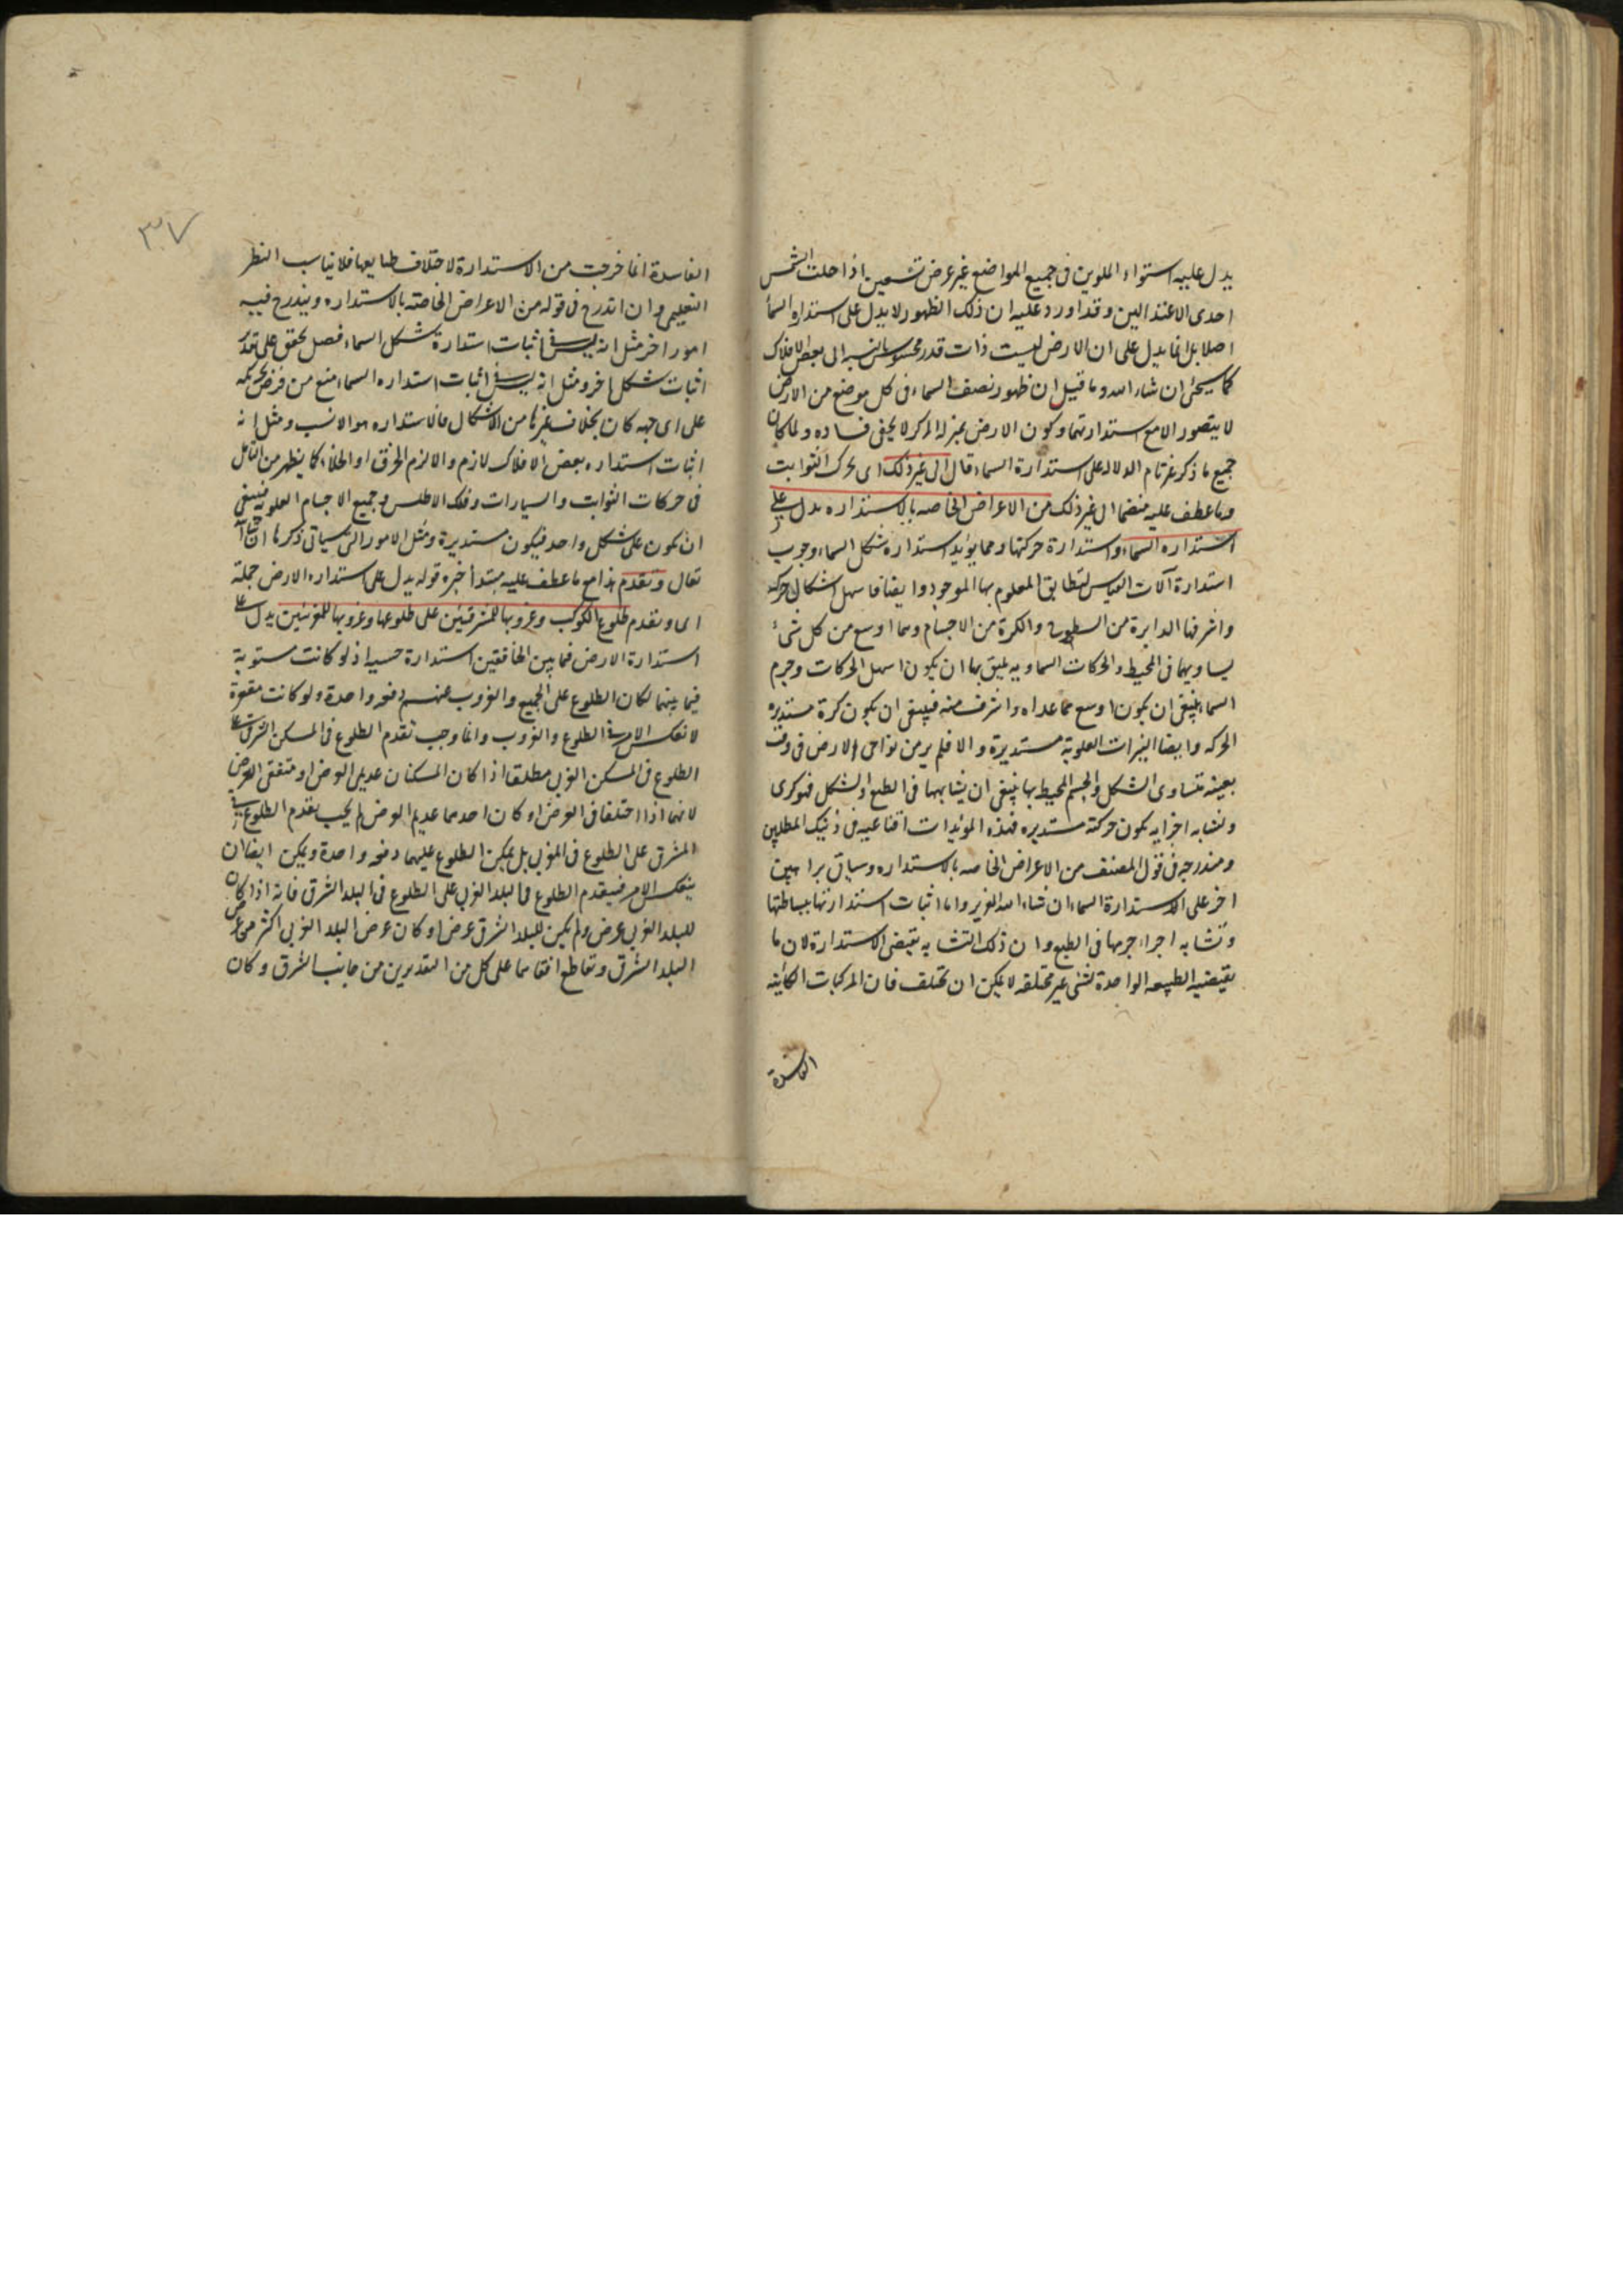 يدل عليه استواء الملوين فى جميع المواضع غير عرض تسعين اذا حلت الشمس
احدى الاعتدالين وقد اورد عليه ان ذلك الظهور لا يدل على استدارة السماء
اصلا بل انما يدل على ان الارض ليست ذات قدر محسوس بالنسبه الى بعض الافلاك
كما سيجئ ان شاء الله وما قيل ان ظهور نصف السماء فى كل موضع من الارض
لا يتصور الا مع استدارتهما وكون الارض بمنزلة المركز لا يخفى فساده ولما كان
جميع ما ذكر غير تام الدلاله على استدارة السماء قال الى غير ذلك اى تحرك الثوابت
وما عطف عليه منضما الى غير ذلك من الاعراض الخاصه بالاستداره يدل على
استداره السماء واستدارة حركتها ومما يؤيد استداره شكل السماء وجوب
استدارة آلات القياس لتطابق المعلوم بها الموجود وايضا فاسهل اشكال حركة
واشرفها الدايرة من السطوح والكرة من الاجسام وهما اوسع من كل شئ
يساويهما فى المحيط والحركات السماويه يليق بها ان يكون اسهل الحركات وجرم
السماء ينبغى ان يكون اوسع مما عداه واشرف منه فينبغى ان يكون كرة مستديره
الحركه وايضا النيرات العلوية مستديرة والا فلم ير من نواحى الارض فى وقت
بعينه متساوى الشكل والجسم المحيط بها ينبغى ان يشابهها فى الطبع والشكل فهو كرى
وتشابه اجزايه يكون حركته مستديره فهذه المؤيدات اقناعيه فى ذينك المطلبين
ومندرجه فى قول المصنف من الاعراض الخاصه بالاستداره وسياتى براهين
اخر على الاستدارة السماء ان شاء الله العزيز واما اثبات استدارتها ببساطتها
وتشابه اجزاء جرمها فى الطبع وان ذلك التشابه يقتضى الاستدارة لان ما
يقتضيه الطبيعه الواحدة لشئ غير مختلفه لا يمكن ان تختلف فان المركبات الكاينه
الفاسدة
٣٧
الفاسدة انما خرجت من الاستدارة لاختلاف طبايعها فلا يناسب النظر
التعليمى وان اندرج فى قوله من الاعراض الخاصة بالاستداره ويندرج فيه
امور اخر مثل انه ليس فى اثبات استدارة شكل السماء فصل يحقق على
اثبات شكل اخر ومثل انه ليس فى اثبات استداره السماء منع من فرض تحركه
على اى جهه كان بخلاف غيرها من الاشكال فالاستداره هو الانسب ومثل انه
اثبات استداره بعض الافلاك لازم والا لزم الخرق او الخلاء كما يظهر من التأمل
فى حركات الثوابت والسيارات وفلك الاطلس وجميع الاجسام العلويه فينبغى
ان يكون على شكل واحد فيكون مستديرة ومثل الامور التى سياتى ذكرها ان شاء
تعالى وتقدم هذا مع ما عطف عليه مبتدأ خبره قوله يدل على استداره الارض جملة
اى وتقدم طلوع الكوكب وغروبها للمشرقيين على طلوعها وغروبها للمغربيين يدل على
استدارة الارض فيما بين الخافقين استدارة حسيه اذ لو كانت مستوية
فيما بينهما لكان الطلوع على الجميع والغروب عنهم دفعه واحدة ولو كانت مقعرة
لانعكس الامر فى الطلوع والغروب وانما وجب تقدم الطلوع فى المسكن الشرقى على
الطلوع فى المسكن الغربى مطلقا اذا كان المسكنان عديمى العرض او متفقى العرض
لانهما اذا اختلفا فى العرض او كان احدهما عديم العرض لم يجب تقدم الطلوع فى
المشرق على الطلوع فى المغرب بل يمكن الطلوع عليهما دفعه واحدة ويمكن ايضا ان
ينعكس الامر فيتقدم الطلوع فى البلد الغربى على الطلوع فى البلد الشرقى فانه اذا كان
للبلد الغربى عرض ولم يكن للبلد الشرقى عرض او كان عرض البلد الغربى اكثر من عرض
البلد الشرقى وتقاطع افقاهما على كل من التقديرين من جانب الشرق وكان